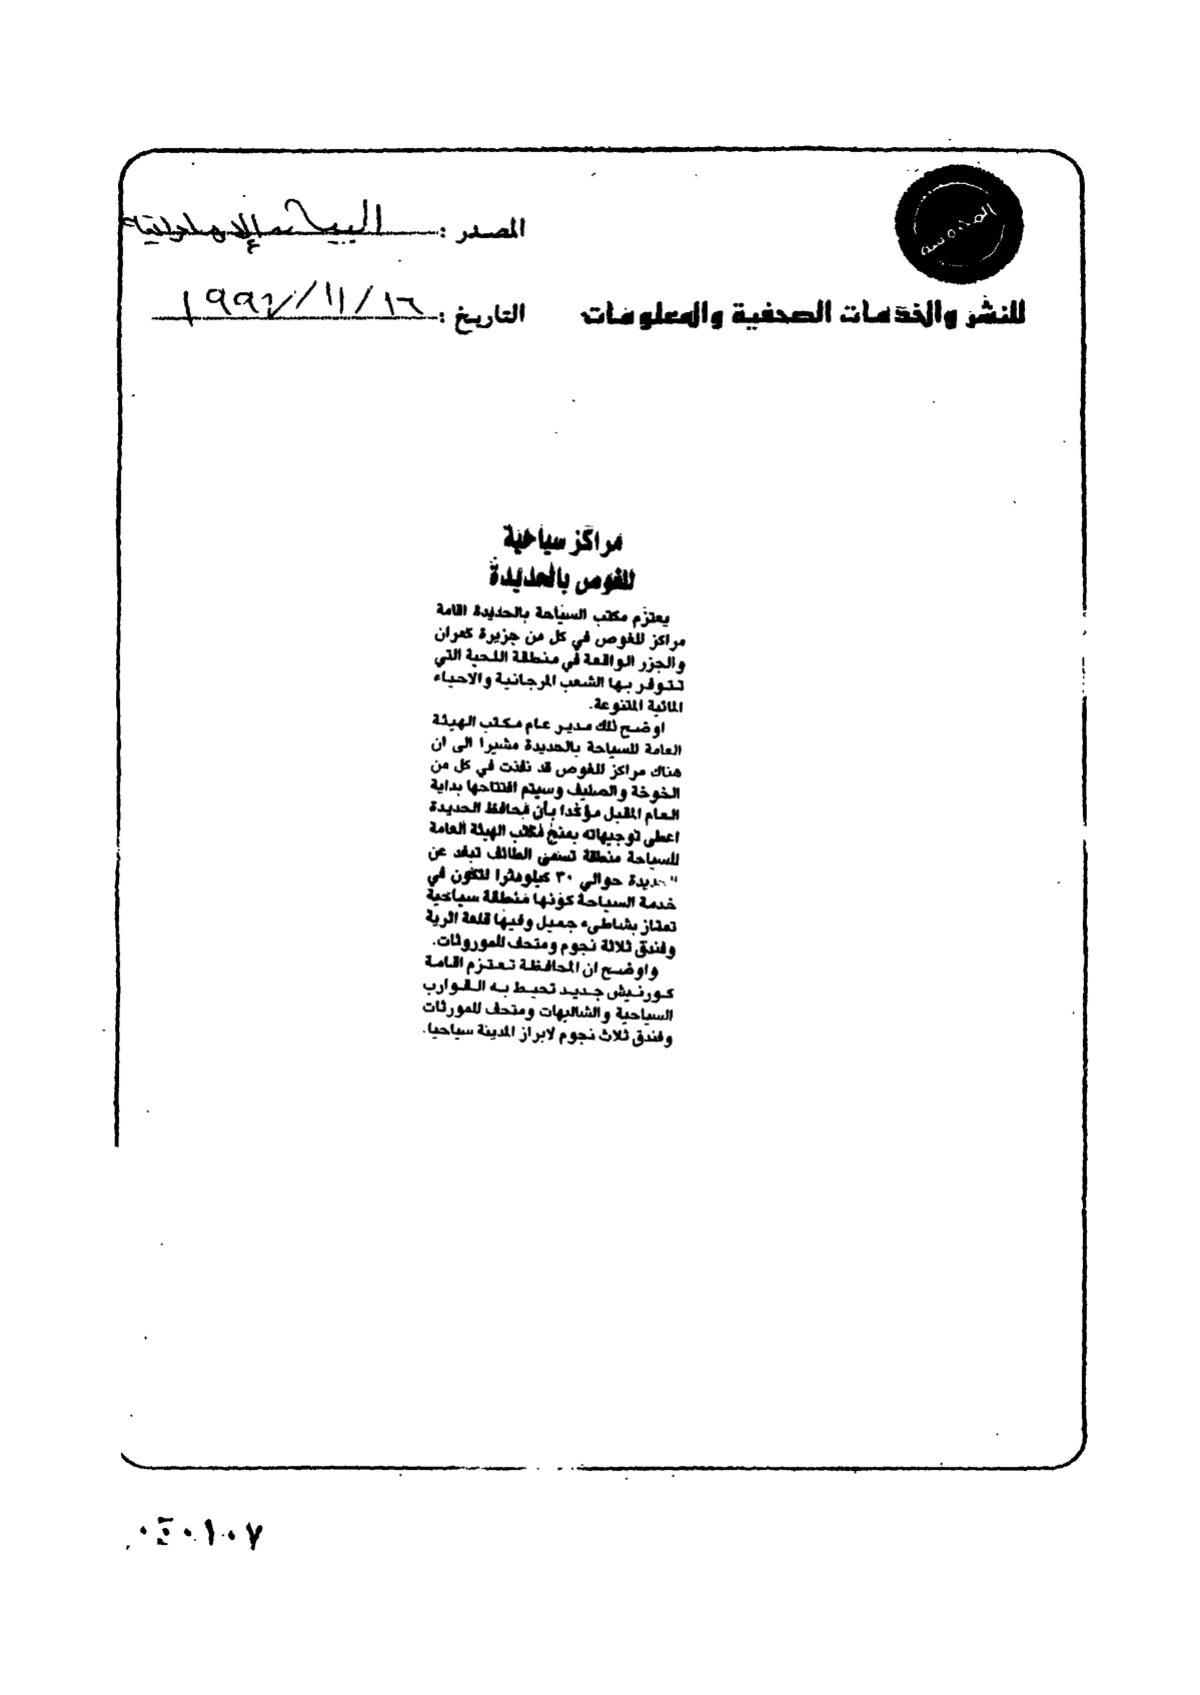 المصدر : البيان الإماراتية
التاريخ : ١٦/١١/١٩٩٦
للنشر والخدمات الصحفية والمعلومات
مراكز سياحية
للغوص بالحديدة
يعتزم مكتب السياحة بالحديدة اقامة
مراكز للغوص في كل من جزيرة كمران
والجزر الواقعة في منطقة اللحية التي
تتوفر بها الشعب المرجانية والاحياء
المائية المتنوعة.
اوضح ذلك مدير عام مكتب الهيئة
العامة للسياحة بالحديدة مشيرا الى ان
هناك مراكز للغوص قد نفذت في كل من
الخوخة والصليف وسيتم افتتاحها بداية
العام المقبل مؤكدا بأن محافظ الحديدة
اعطى توجيهاته بمنح مكتب الهيئة العامة
للسياحة منطقة تسمى الطائف تبعد عن
الحديدة حوالي ٣٠ كيلومترا لتكون في
خدمة السياحة كونها منطقة سياحية
تمتاز بشاطىء جميل وفيها قلعة اثرية
وفندق ثلاثة نجوم ومتحف للموروثات.
واوضح ان المحافظة تعتزم اقامة
كورنيش جديد تحيط به القوارب
السياحية والشاليهات ومتحف للمورثات
وفندق ثلاث نجوم لابراز المدينة سياحيا.